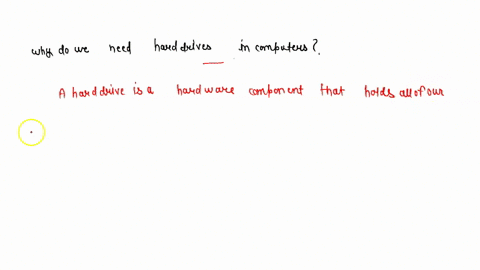 why do we need harddrives in computers?.
A harddrive is a hardware component that holds all of our